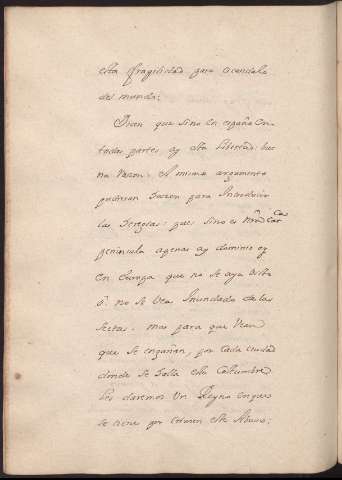 esta fragilidad para escandalo
del mundo;
Dicen que sino en españa en
todas partes ay esta libertad: bue
na Razon: el mismo argumento
pudieran hacer para Introducir
las heregias: pues sino es nrâ
península apenas ay dominio oy
en Europa que no se aya visto
ô no se vea Inundado de las
sectas. mas para que vean
que se engañan, por cada ciudad
donde se halla esta costumbre
les daremos Un Reyno en que
se tiene por crimen este Abuso;